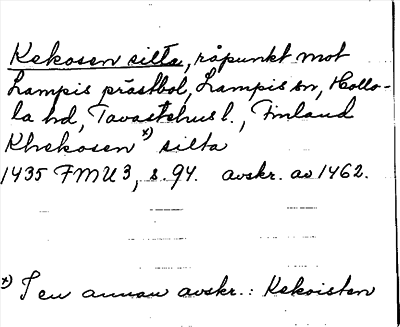 Kekosen silta, råpunkt mot
Lampis prästbol, Lampis sn, Hollo-
la hd, Tavastehus l., Finland
Khekosen x) silta
1435 FMU 3, s. 94. avskr. av 1462.
x) I en annan avskr.: Kekoisten